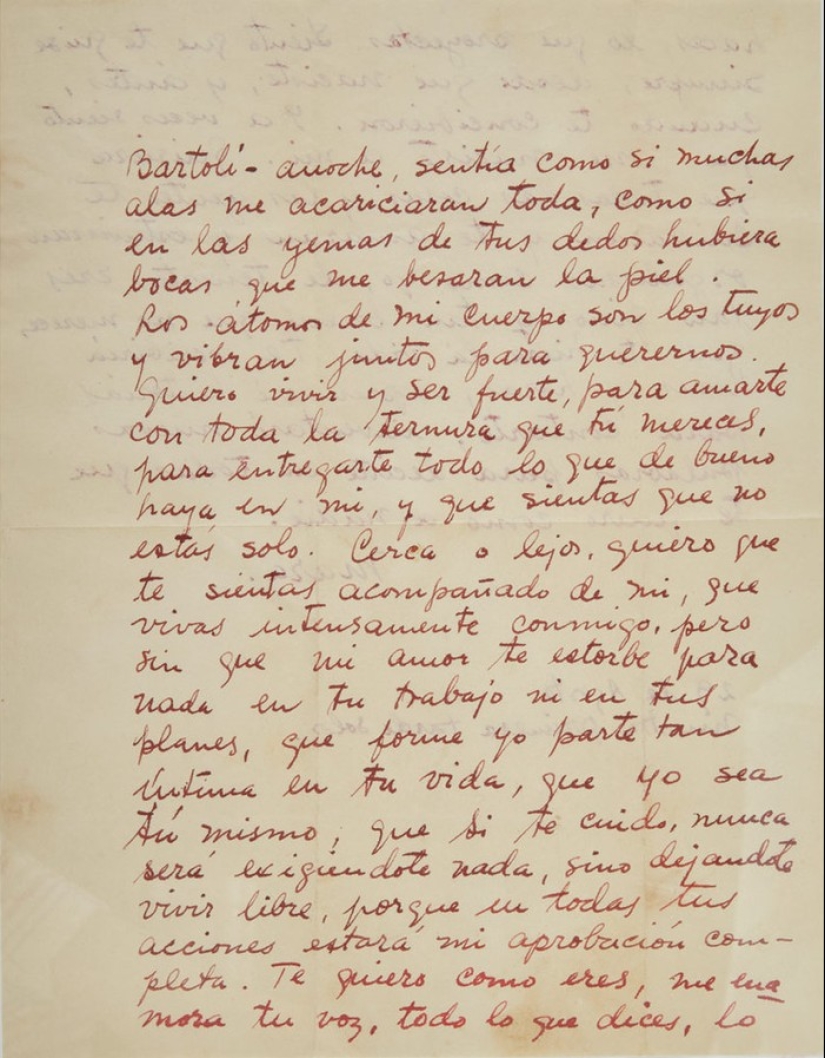 Bartolí - anoche, sentía como si muchas
alas me acariciaran toda, como si
en las yemas de tus dedos hubiera
bocas que me besaran la piel.
Los átomos de mi cuerpo son los tuyos
y vibran juntos para querernos.
Quiero vivir y ser fuerte, para amarte
con toda la ternura que tú mereces,
para entregarte todo lo que de bueno
haya en mi, y que sientas que no
estás solo. Cerca o lejos, quiero que
te sientas acompañado de mi, que
vivas intensamente conmigo, pero
sin que mi amor te estorbe para
nada en tu trabajo ni en tus
planes, que forme yo parte tan
íntima en tu vida, que yo sea
tú mismo, que si te cuido, nunca
será exigiendote nada, sino dejandote
vivir libre, porque en todas tus
acciones estará mi aprobación com-
pleta. Te quiero como eres, me ena
mora tu voz, todo lo que dices, lo